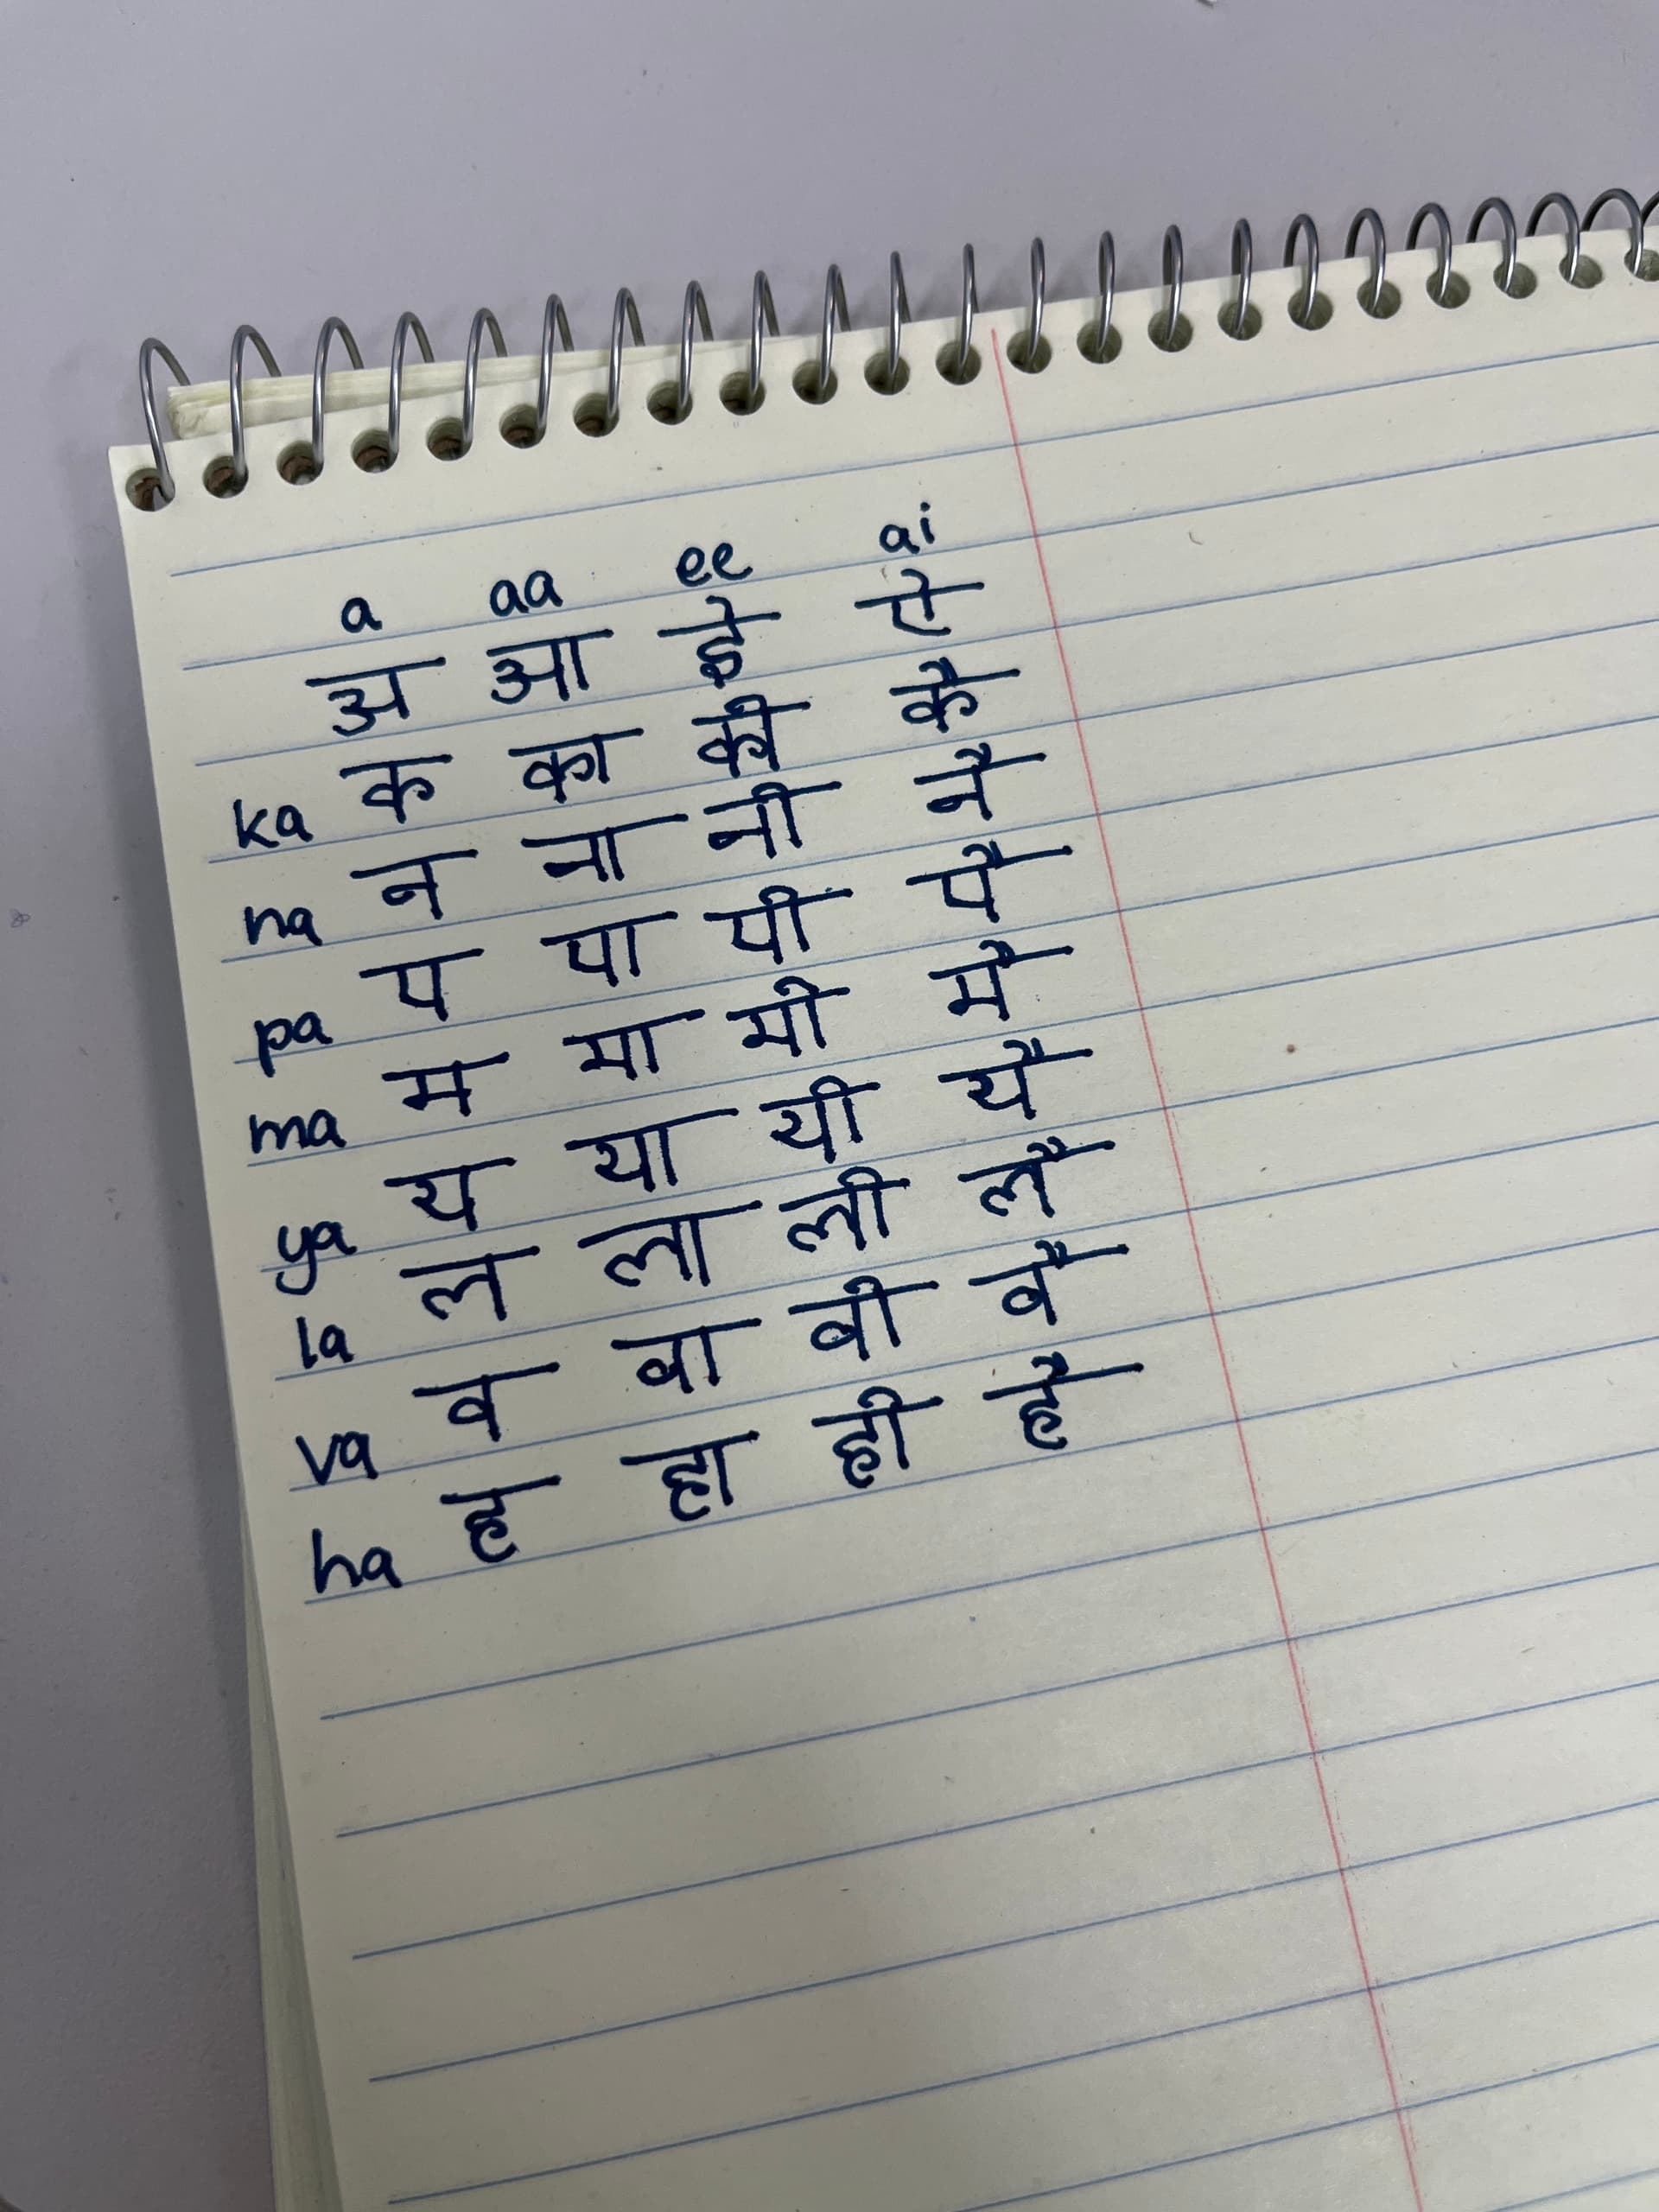 a aa ee ai
अ आ ई ऐ
ka क का की कै
na न ना नी नै
pa प पा पी पै
ma म मा मी मै
ya य या यी यै
la ल ला ली लै
va व वा वी वै
ha ह हा ही है